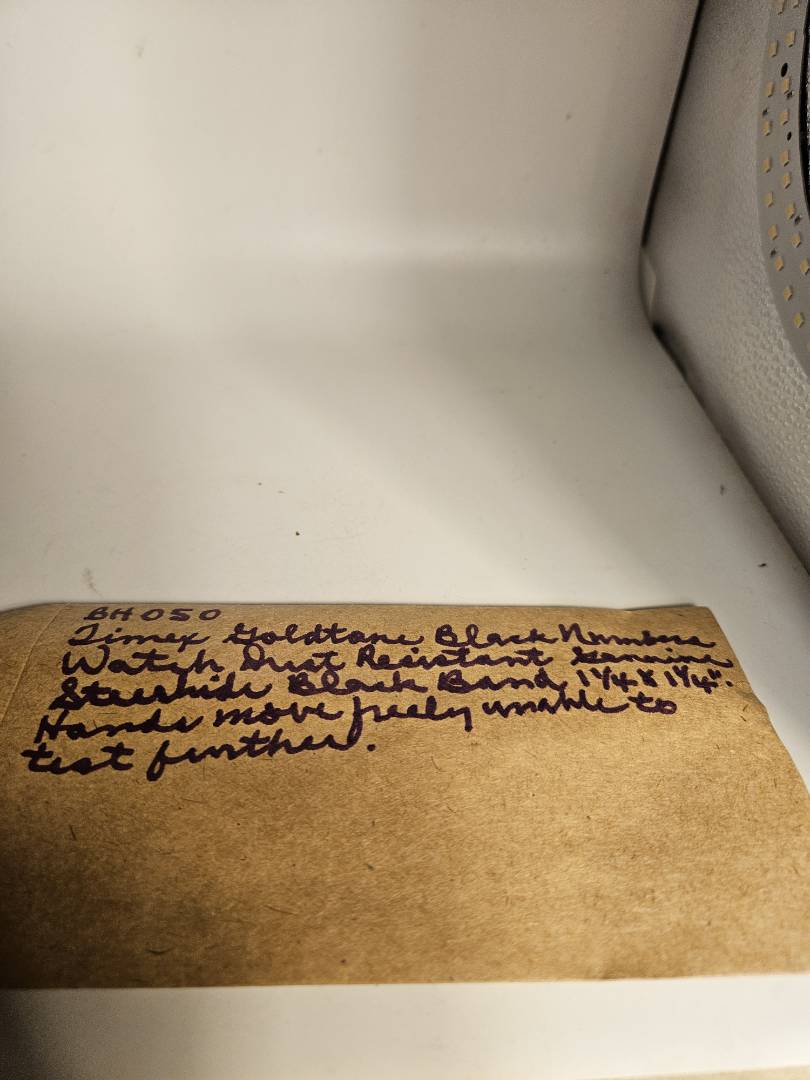 BH050
Timex Goldtone Black Numbers
Watch Dust Resistant Genuine
Steerhide Black Band 1 1/4 x 1 1/4".
Hands move freely unable to
test further.